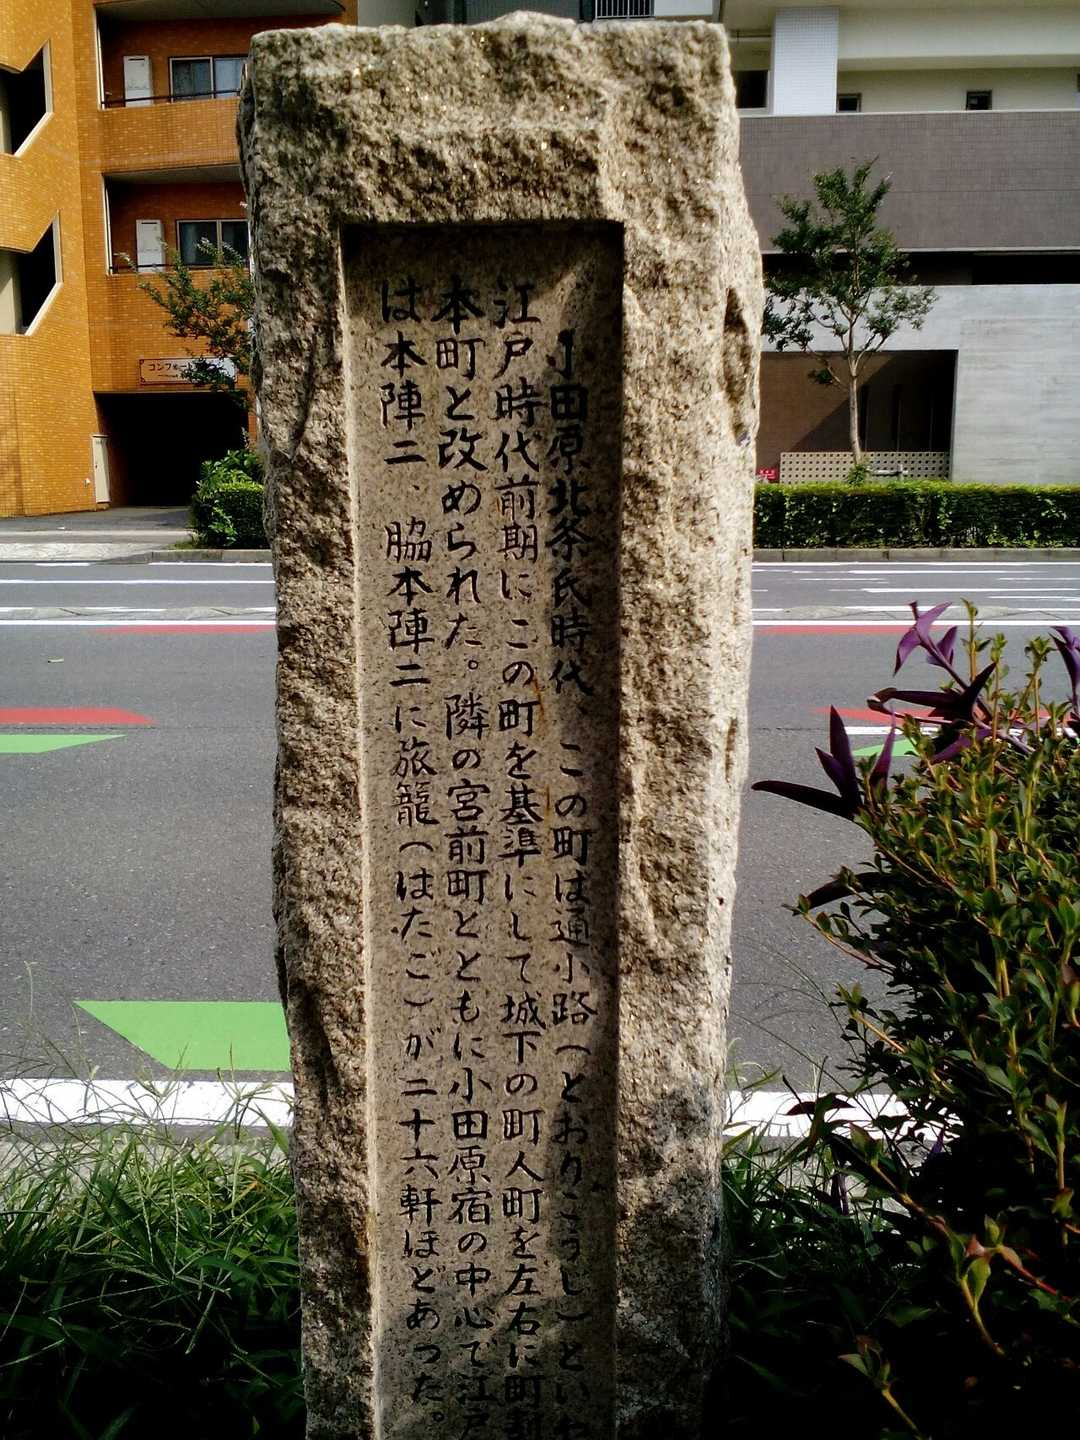 小田原北条氏時代、この町は通小路（とおりこうじ）といわ
江戸時代前期にこの町を基準にして城下の町人町を左右に町割
本町と改められた。隣の宮前町とともに小田原宿の中心で江戸
は本陣二、脇本陣二に旅籠（はたご）が二十六軒ほどあった。